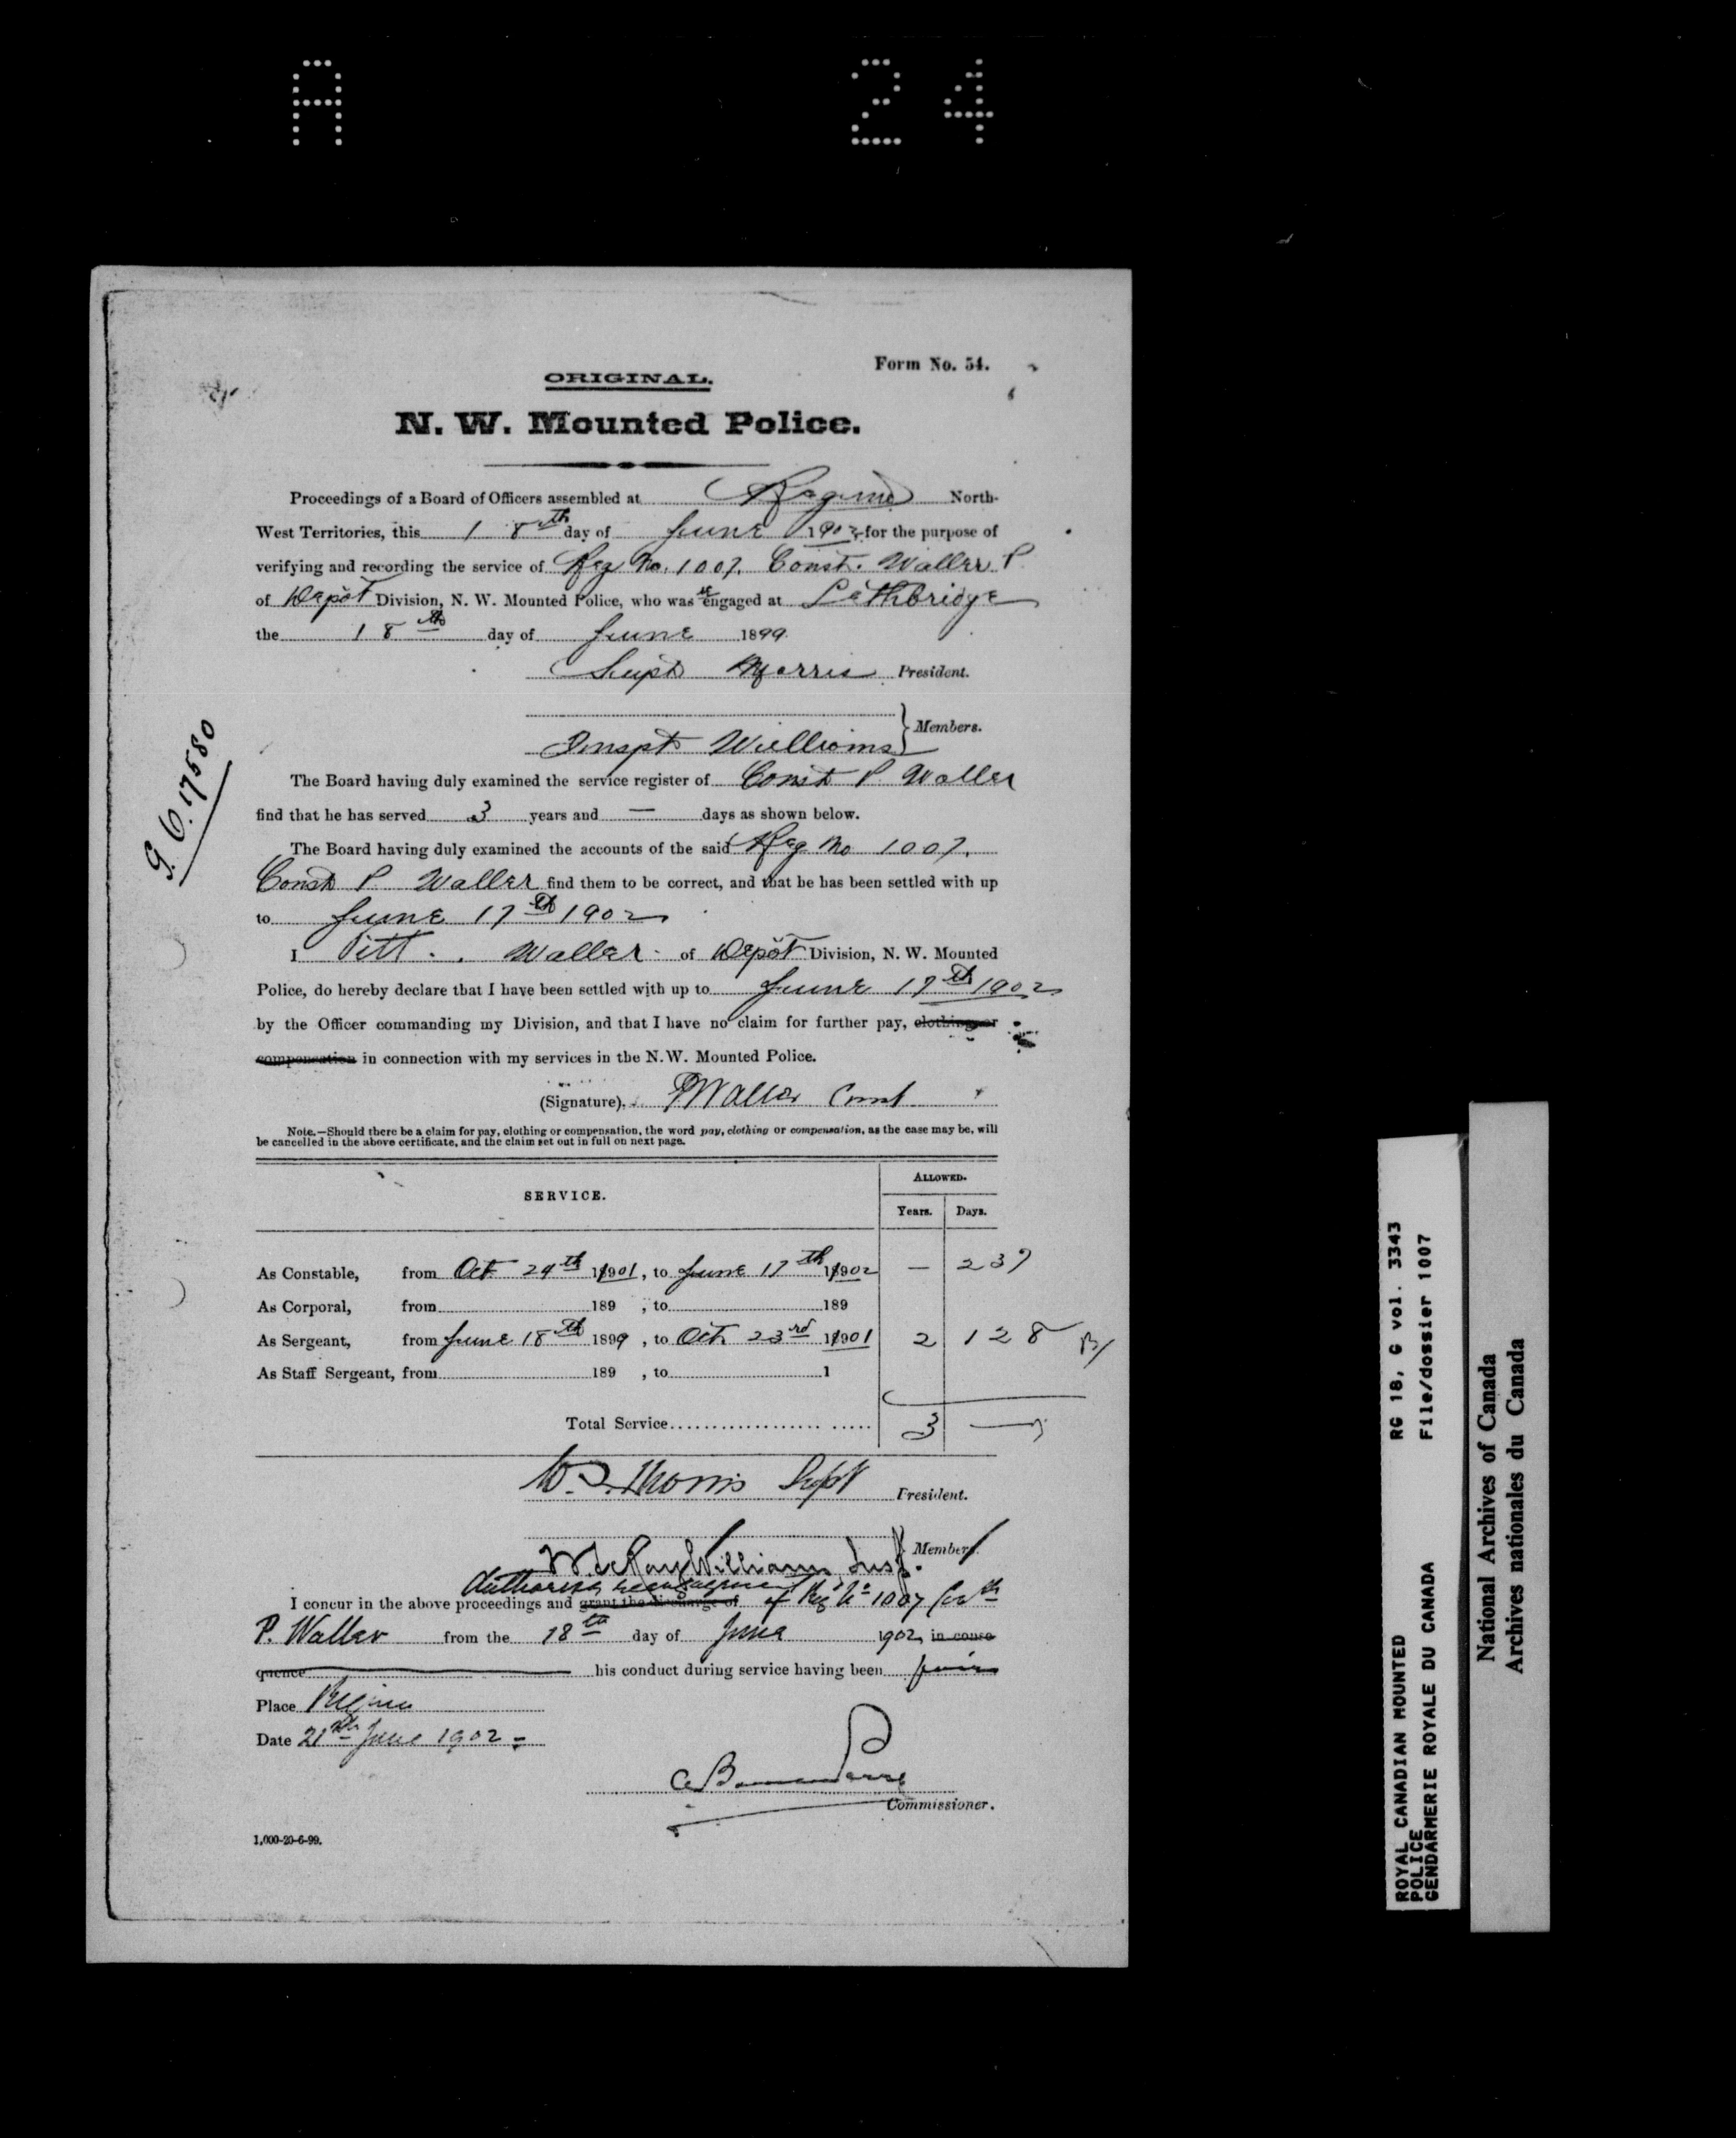 A 24
Form No. 54.
ORIGINAL.
N. W. Mounted Police.
Proceedings of a Board of Officers assembled at Regina North-
West Territories, this 18th day of June 1902 for the purpose of
verifying and recording the service of Reg No. 1007. Const. Waller P.
of Depôt Division, N. W. Mounted Police, who was re engaged at Lethbridge
the 18th day of June 1899
Supt Morris President.
Members.
Inspt Williams
G. C. 17580
The Board having duly examined the service register of Const P. Waller
find that he has served 3 years and — days as shown below.
The Board having duly examined the accounts of the said Reg No 1007.
Const P. Waller find them to be correct, and that he has been settled with up
to June 17th 1902
I Pitt. Waller of Depôt Division, N. W. Mounted
Police, do hereby declare that I have been settled with up to June 17th 1902
by the Officer commanding my Division, and that I have no claim for further pay, clothing or
compensation in connection with my services in the N.W. Mounted Police.
(Signature). PWaller Const
Note.—Should there be a claim for pay, clothing or compensation, the word pay, clothing or compensation, as the case may be, will
be cancelled in the above certificate, and the claim set out in full on next page.
SERVICE. ALLOWED.
Years. Days.
As Constable, from Oct 24th 1901, to June 17th 1902 — 237
As Corporal, from 189 , to 189
As Sergeant, from June 18th 1899, to Oct 23rd 1901 2 128
As Staff Sergeant, from 189 , to 1
Total Service 3 —
W. S. Morris Supt President.
Members.
Williams, Insp.
Authorise reengagement
I concur in the above proceedings and grant the discharge of of Reg No 1007 Const
P. Waller from the 18th day of June 1902, in conse
quence his conduct during service having been
Place Regina
Date 21st June 1902
A Bowen Perry
Commissioner.
1,000-20-6-99.
ROYAL CANADIAN MOUNTED RG 18, G vol. 3343
POLICE
GENDARMERIE ROYALE DU CANADA File/dossier 1007
National Archives of Canada
Archives nationales du Canada